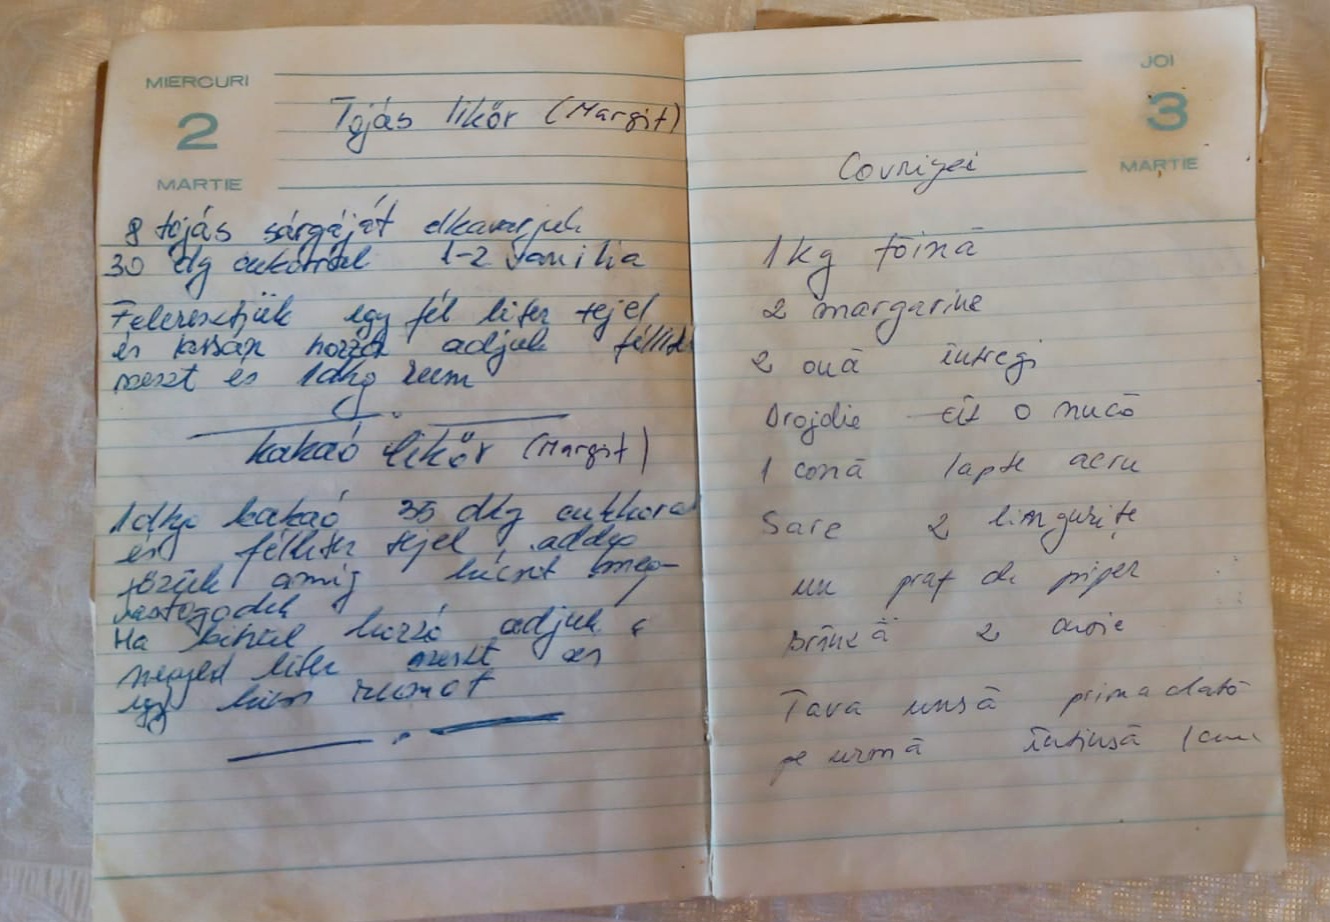 MIERCURI
2
MARTIE
Tojás likőr (Margit)
8 tojás sárgáját elkavarjuk
30 dg cukorral 1-2 Vanilia
Feleresztjük egy fél liter tejel
és lassan hozzá adjuk féllit
szeszt és 1dkg rum
kakaó likőr (Margit)
1dkg kakaó 35 dkg cukkoral
és félliter tejel addig
főzük amig kicsit meg-
vastagodik
Ha kihül hozzá adjuk
negyed liter szeszt és
egy kicsi rumot
JOI
3
MARTIE
Covrigei
1 kg făină
2 margarine
2 ouă întregi
Drojdie cît o nucă
1 cană lapte acru
Sare 2 lingurițe
un praf de piper
Brînză
Tava unsă prima dată
pe urmă întinsă 1cm